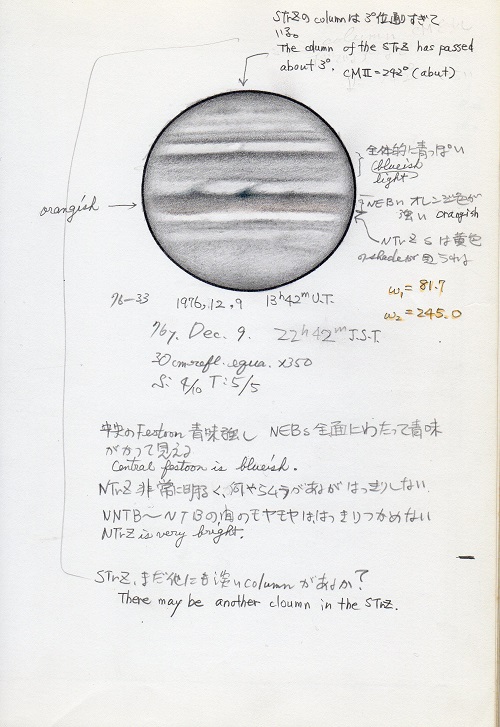 STrZのcolumnは3°位過ぎて
いる。
The column of the STrZ has passed
about 3°. CMII=242° (abut)
全体的に青っぽい
blueish
light
orangish
NEBn オレンジ色が
強い orangish
NTrZ Sは黄色
76-33 1976, 12, 9 13h42m U.T.
ω1 = 81.7
ω2 = 245.0
76y. Dec. 9. 22h42m J.S.T.
30cm refl. equa. x350
S: 4/10 T: 5/5
中央のFestoon 青味強し NEBs 全面にわたって青味
がかって見える
Central festoon is blueish.
NTrZ 非常に明るく、何やらムラがあるがはっきりしない.
NNTB〜NTBの間のモヤモヤははっきりつかめない
NTrZ is very bright.
STrZ, まだ他にも淡いcolumnがあるか?
There may be another cloumn in the STrZ.